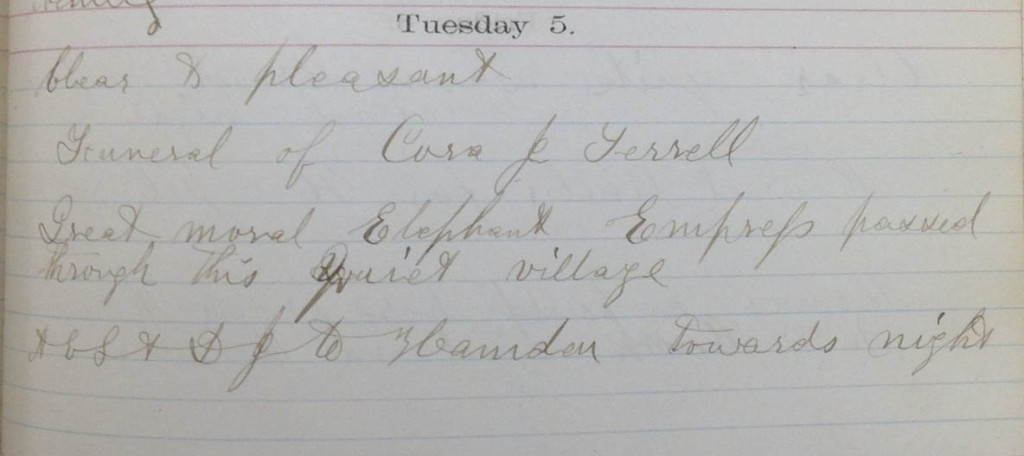 Tuesday 5.
Clear & pleasant
Funeral of Cora J Ferrell
Great moral Elephant Empress passed
through this Quiet village
to Hamden towards night